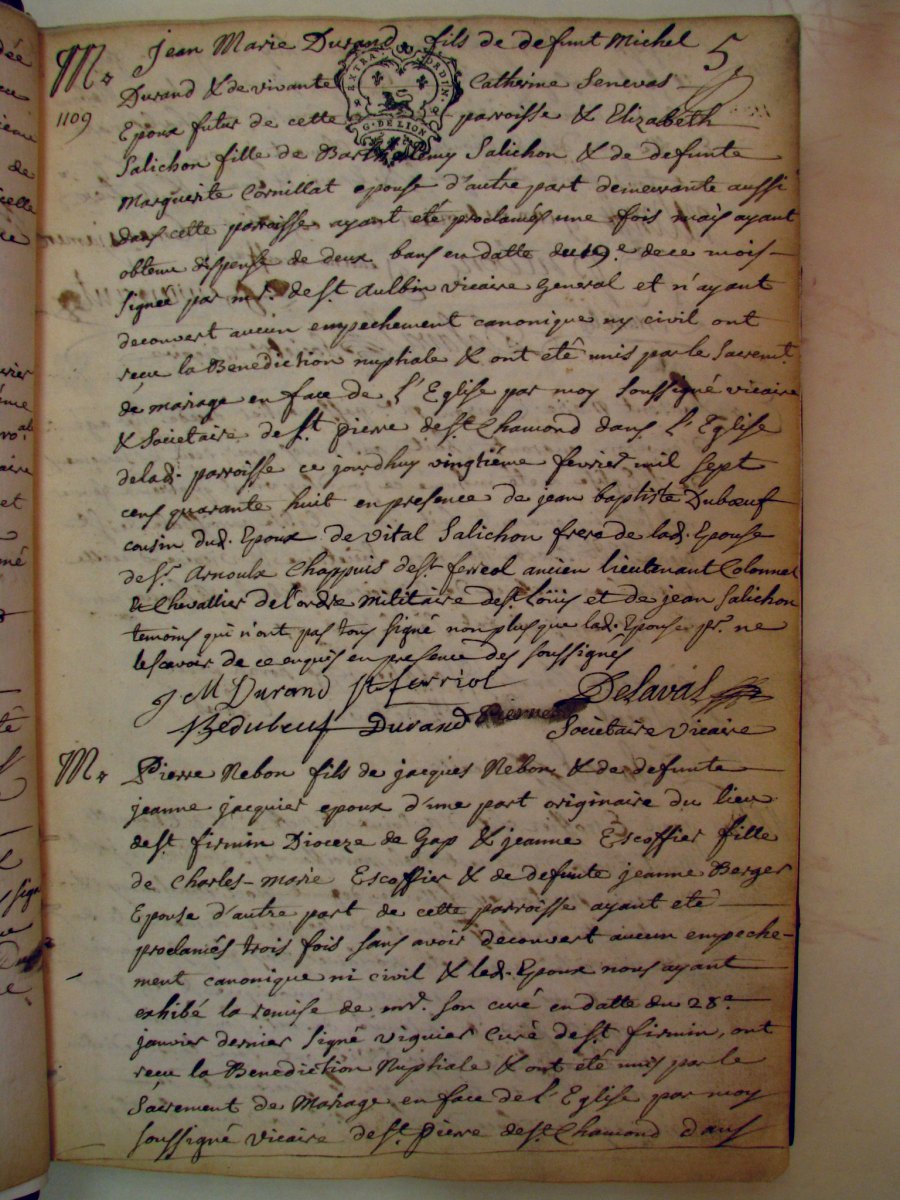 5
M. Jean Marie Durand fils de defunt Michel
1109
Durand & de vivante Catherine Senevas
EXTRAORDIN.
G. DE LION
Epoux futur de cette parroisse & Elizabeth
Salichon fille de Barthelemy Salichon & de defunte
Marguerite Cornillat epouse d'autre part demeurante aussi
dans cette parroisse ayant eté proclamés une fois mais ayant
obtenu dispense de deux bans en datte du 19.e de ce mois
signée par mr. de st. Aulbin vicaire General et n'ayant
decouvert aucun empechement canonique ny civil ont
receu la Benediction nuptiale & ont eté unis par le Sacremt.
de mariage en face de L'Eglise par moy soussigné vicaire
& Societaire de st. pierre de st. Chamond dans L'Eglise
de lad. parroisse ce jourdhuy vingtiéme fevrier mil sept
cens quarante huit en presence de jean baptiste Dubœuf
cousin dud. Epoux de vital Salichon frere de lad. Epouse
de sr. Arnoulx Chappuis de st. ferreol ancien lieutenant Colonnel
& Chevallier de l'ordre militaire de st. Loüis et de jean Salichon
temoins qui n'ont pas tous signé non plus que lad. Epouse pr. ne
le scavoir de ce enquis en presence des soussignés
J M Durand St ferriol Delaval
Bedubeuf Durand Societaire Vicaire
M. Pierre Nebon fils de jacques Nebon & de defunte
jeanne jacquier epoux d'une part originaire du lieu
de st. firmin Dioceze de Gap & jeanne Escoffier fille
de Charles-marie Escoffier & de defunte jeanne Berger
Epouse d'autre part de cette parroisse ayant eté
proclamés trois fois sans avoir decouvert aucun empeche-
ment canonique ni civil & led. Epoux nous ayant
exhibé la remise de mr. son curé en datte du 28.e
janvier dernier signé viguier Curé de st. firmin, ont
receu la Benediction Nuptiale & ont eté unis par le
Sacrement de Mariage en face de L'Eglise par moy
soussigné vicaire de st. pierre de st. Chamond dans